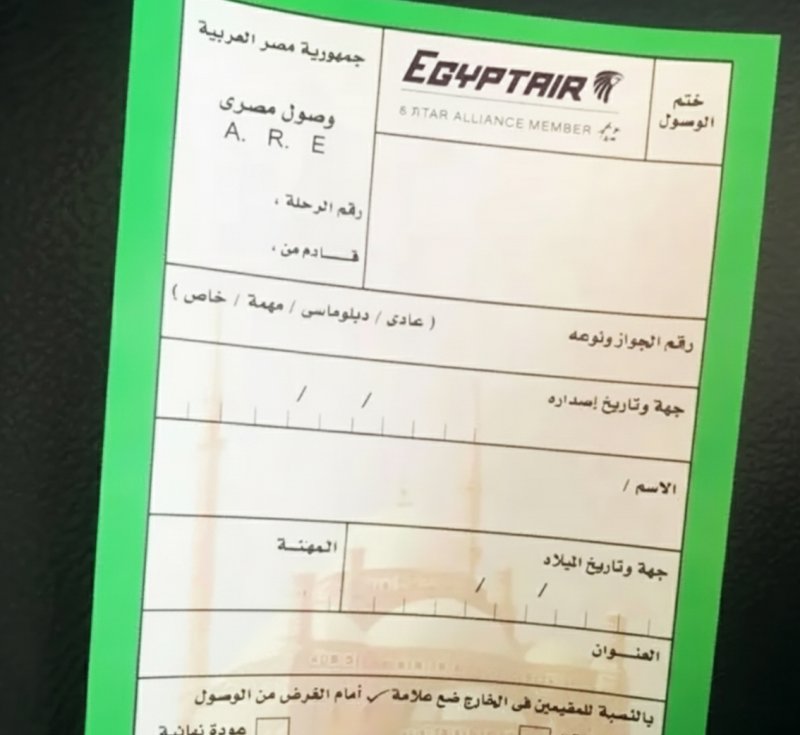 جمهورية مصر العربية
وصول مصرى
A. R. E
رقم الرحلة ،
قـــادم من ،
EGYPTAIR
STAR ALLIANCE MEMBER
ختم
الوسول
رقم الجواز ونوعه
( عادى / دبلوماسى / مهمة / خاص )
جهة وتاريخ إصداره
/ /
الاسم /
جهة وتاريخ الميلاد
/ /
المهنـــة
العنـــوان
بالنسبة للمقيمين فى الخارج ضع علامة ✓ أمام الغرض من الوسول
عودة نهائية